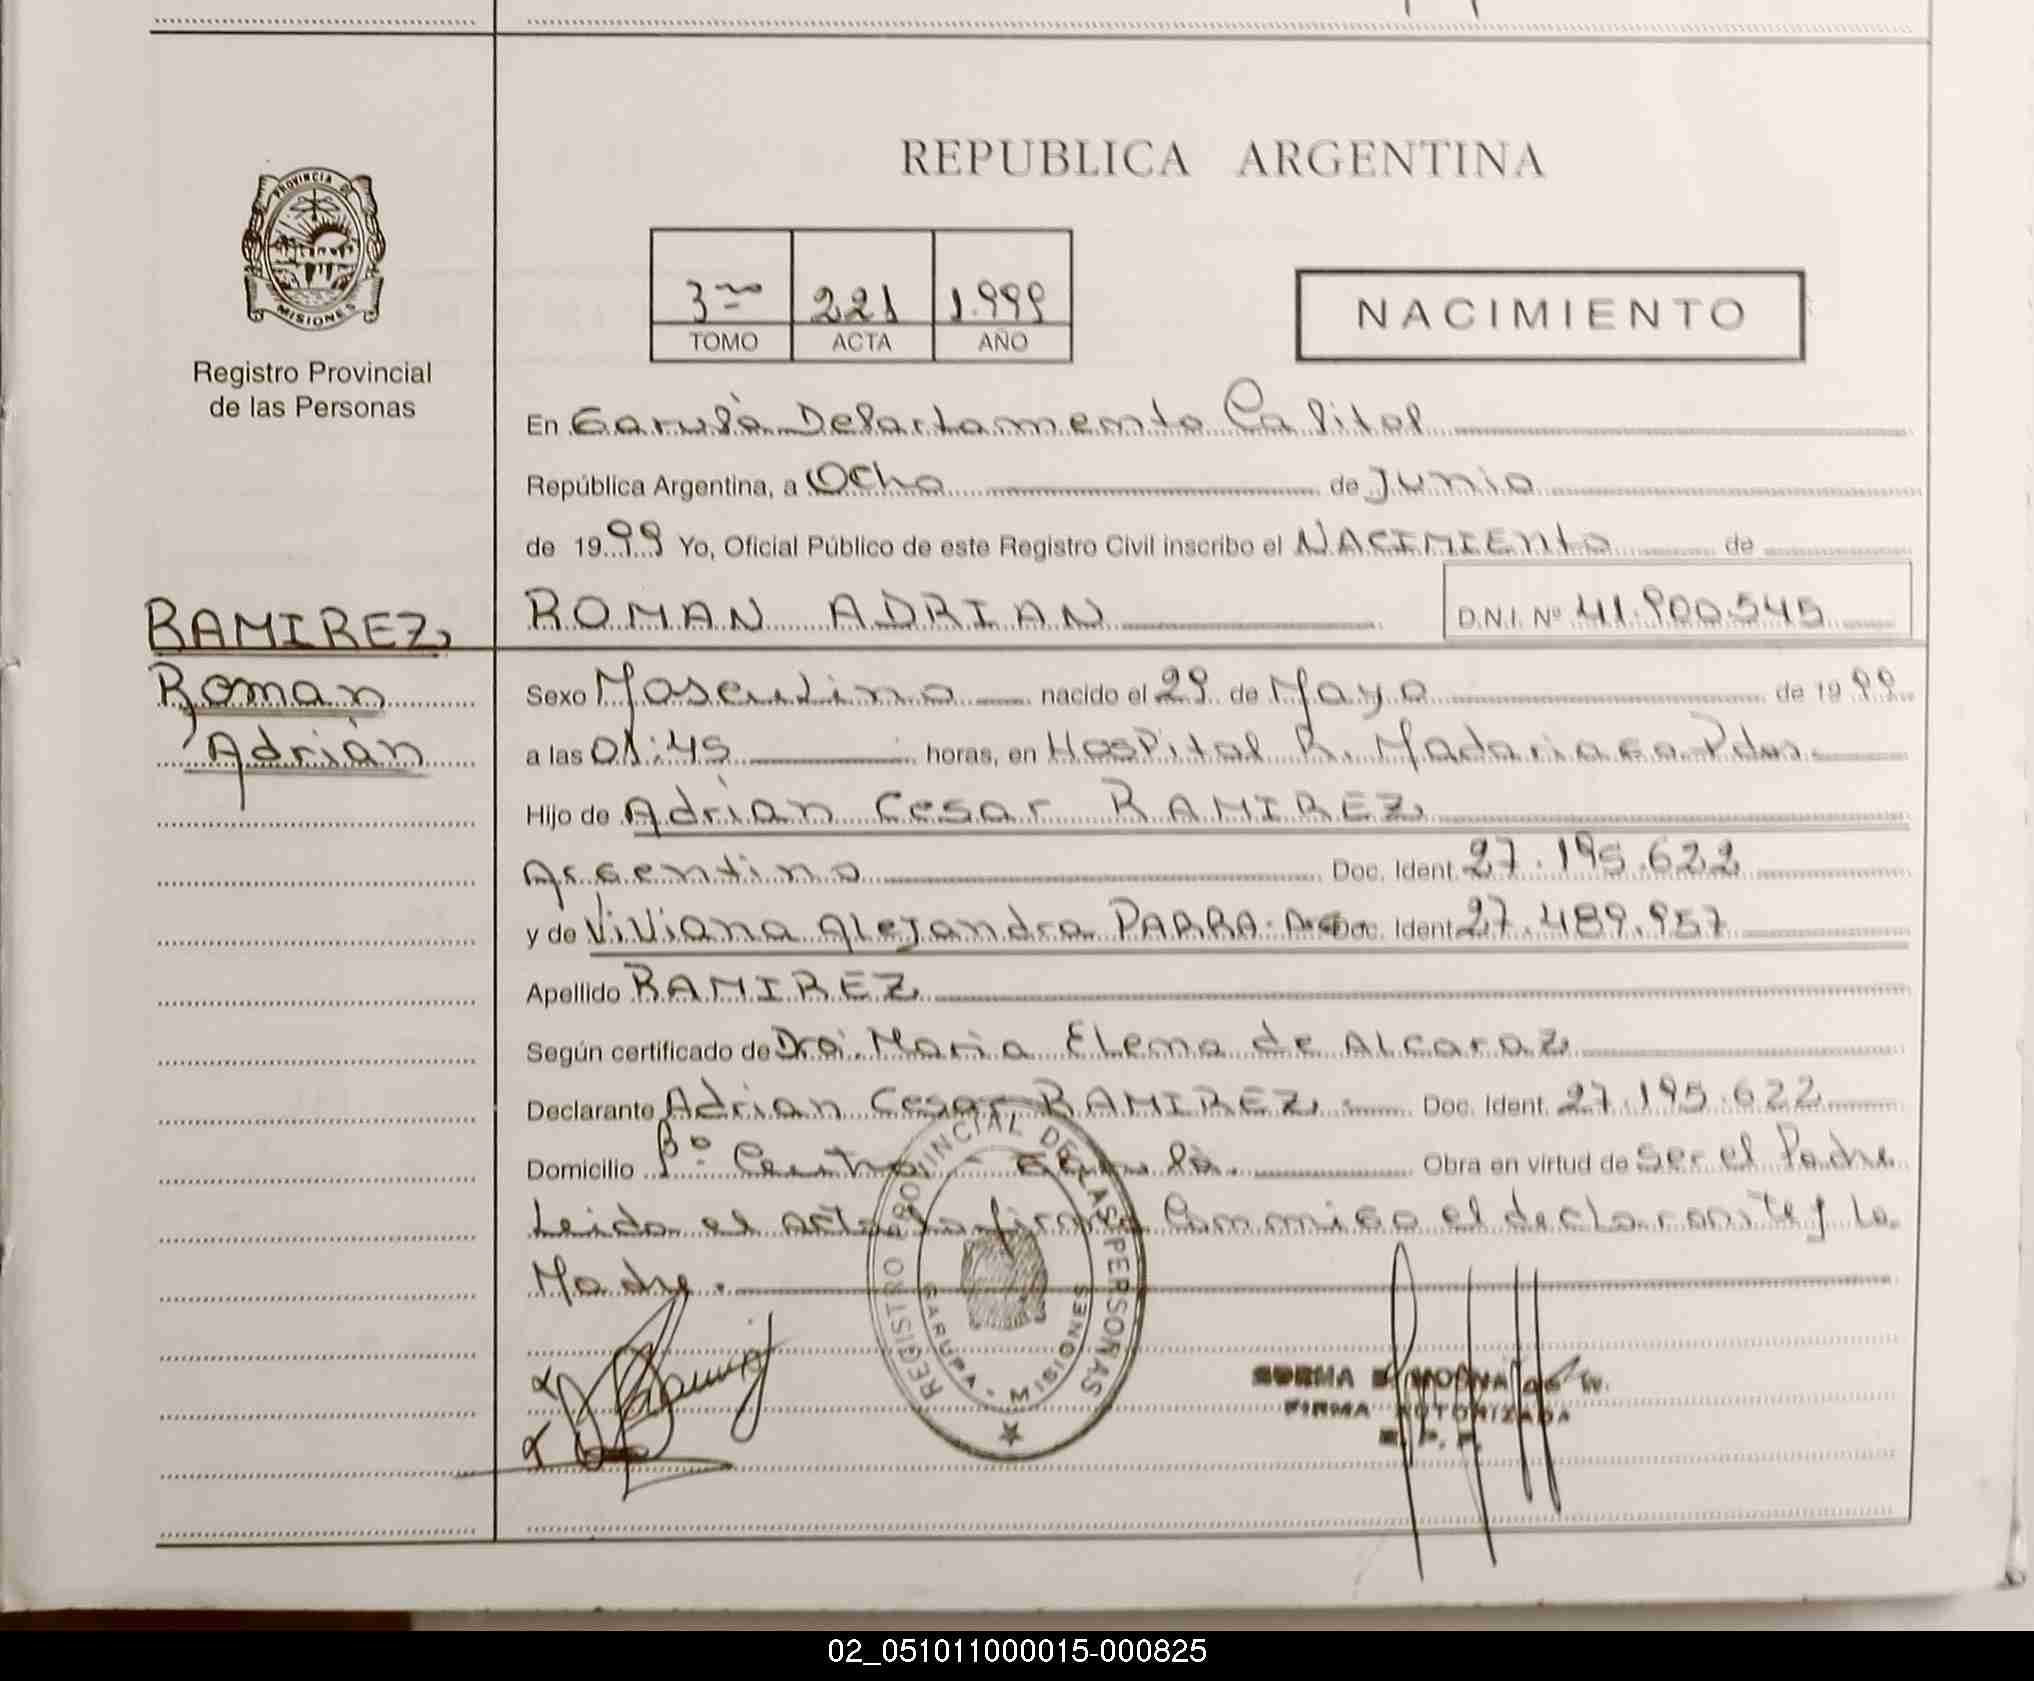 PROVINCIA DE
MISIONES
Registro Provincial
de las Personas
REPUBLICA ARGENTINA
3ro 221 1.999
TOMO ACTA AÑO
NACIMIENTO
En Garupá Departamento Capital
República Argentina, a Ocho de Junio
de 1999 Yo, Oficial Público de este Registro Civil inscribo el NACIMIENto de
RAMIREZ
Roman
Adrián
ROMAN ADRIAN D.N.I. Nº 41.900.545
Sexo Masculino nacido el 29 de Mayo de 1999
a las 01:45 horas, en Hospital R. Madariaga Pdas.
Hijo de Adrian Cesar RAMIREZ
Argentino Doc. Ident. 27.195.622
y de Viviana Alejandra PARRA. Arg. Doc. Ident. 27.489.957
Apellido RAMIREZ
Según certificado de Dra. Maria Elena de Alcaraz
Declarante Adrian Cesar RAMIREZ Doc. Ident. 27.195.622
Domicilio Bº Centro - Garupá. Obra en virtud de Ser el Padre
Leida el acta la firma Conmigo el declarante y la
Madre.
REGISTRO PROVINCIAL DE LAS PERSONAS
GARUPA - MISIONES
FIRMA AUTORIZADA
02_051011000015-000825